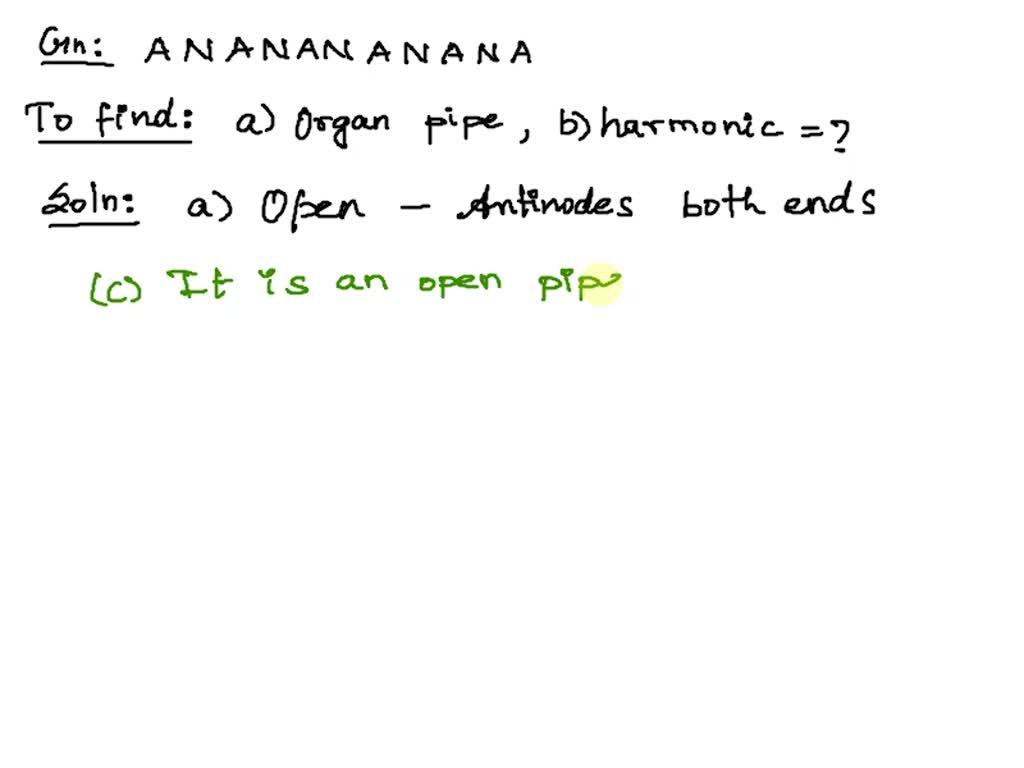 Gn: A N A N A N A N A N A
To find: a) Organ pipe, b) harmonic = ?
Soln: a) Open - Antinodes both ends
(c) It is an open pipe